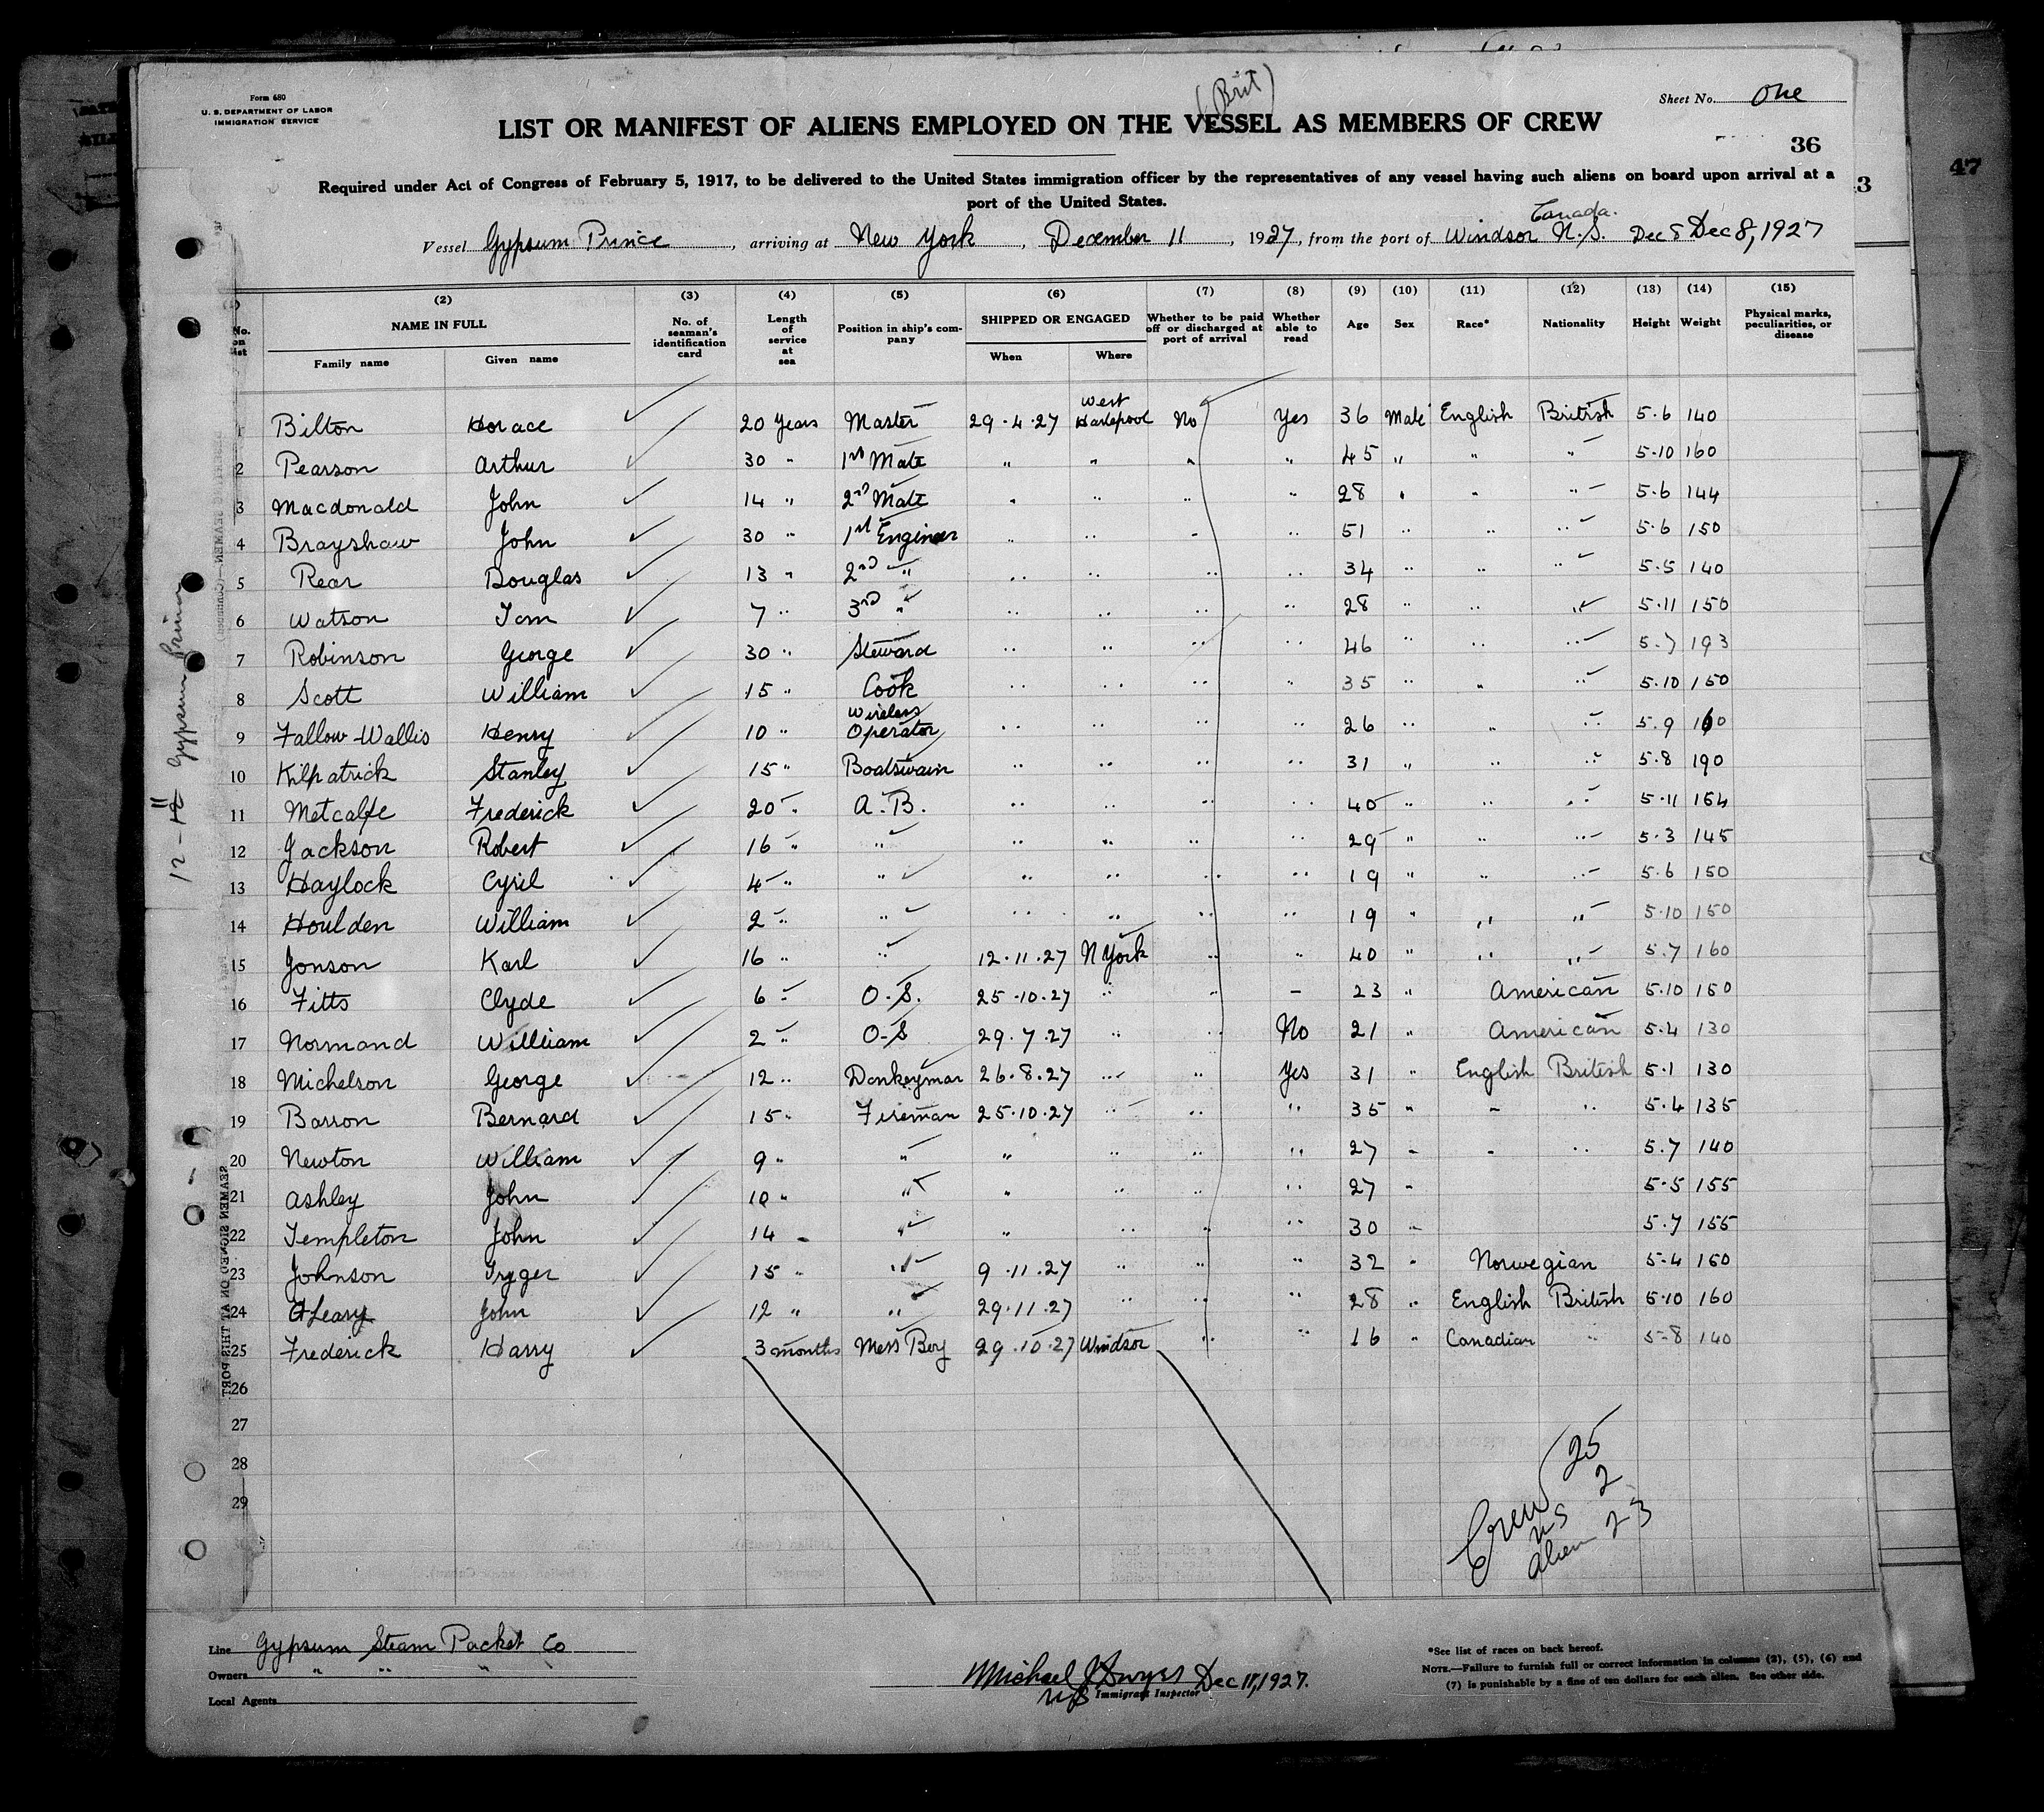 Form 680
U. S. DEPARTMENT OF LABOR
IMMIGRATION SERVICE
(Brit)
Sheet No. One
LIST OR MANIFEST OF ALIENS EMPLOYED ON THE VESSEL AS MEMBERS OF CREW
36
47
Required under Act of Congress of February 5, 1917, to be delivered to the United States immigration officer by the representatives of any vessel having such aliens on board upon arrival at a
port of the United States.
Canada.
Vessel Gypsum Prince, arriving at New York, December 11, 1927, from the port of Windsor N.S. Dec 8 Dec 8, 1927
(2) (3) (4) (5) (6) (7) (8) (9) (10) (11) (12) (13) (14) (15)
No. on list NAME IN FULL Family name Given name No. of seaman's identification card Length of service at sea Position in ship's company SHIPPED OR ENGAGED When Where Whether to be paid off or discharged at port of arrival Whether able to read Age Sex Race* Nationality Height Weight Physical marks, peculiarities, or disease
1 Bilton Horace 20 years Master 29.4.27 West Hartlepool No Yes 36 Male English British 5.6 140
2 Pearson Arthur 30 " 1st Mate " " " " 45 " " " 5.10 160
3 Macdonald John 14 " 2nd Mate " " " " 28 " " " 5.6 144
4 Brayshaw John 30 " 1st Engineer " " " " 51 " " " 5.6 150
5 Rear Douglas 13 " 2nd " " " " " 34 " " " 5.5 140
6 Watson Tom 7 " 3rd " " " " " 28 " " " 5.11 150
7 Robinson George 30 " Steward " " " " 46 " " " 5.7 193
8 Scott William 15 " Cook " " " " 35 " " " 5.10 150
9 Fallow-Wallis Henry 10 " Wireless Operator " " " " 26 " " " 5.9 160
10 Kilpatrick Stanley 15 " Boatswain " " " " 31 " " " 5.8 190
11 Metcalfe Frederick 20 " A.B. " " " " 40 " " " 5.11 164
12 Jackson Robert 16 " " " " " " 29 " " " 5.3 145
13 Haylock Cyril 4 " " " " " " 19 " " " 5.6 150
14 Houlden William 2 " " " " " " 19 " " " 5.10 150
15 Jonson Karl 16 " " 12.11.27 N York " " 40 " " " 5.7 160
16 Fitts Clyde 6 " O.S. 25.10.27 " " - 23 " American 5.10 150
17 Normand William 2 " O-S 29.7.27 " " No 21 " American 5.4 130
18 Michelson George 12 " Donkeyman 26.8.27 " " Yes 31 " English British 5.1 130
19 Barron Bernard 15 " Fireman 25.10.27 " " " 35 " " " 5.4 135
20 Newton William 9 " " " " " " 27 " " " 5.7 140
21 Ashley John 10 " " " " " " 27 " 5.5 155
22 Templeton John 14 " " " " " " 30 " 5.7 155
23 Johnson Tryger 15 " " 9.11.27 " " " 32 " Norwegian 5.4 160
24 O'Leary John 12 " " 29.11.27 " " " 28 " English British 5.10 160
25 Frederick Harry 3 months Mess Boy 29.10.27 Windsor " " 16 " Canadian " 5-8 140
26
27
28
29
Crew 25
US 2
Alien 23
12-11 Gypsum Prince
SEAMEN SIGNED ON AT THIS PORT
Line Gypsum Steam Packet Co
Owners " " " "
Local Agents
Michael J Dwyer Dec 11, 1927.
US Immigrant Inspector
*See list of races on back hereof.
NOTE.—Failure to furnish full or correct information in columns (2), (5), (6) and
(7) is punishable by a fine of ten dollars for each alien. See other side.